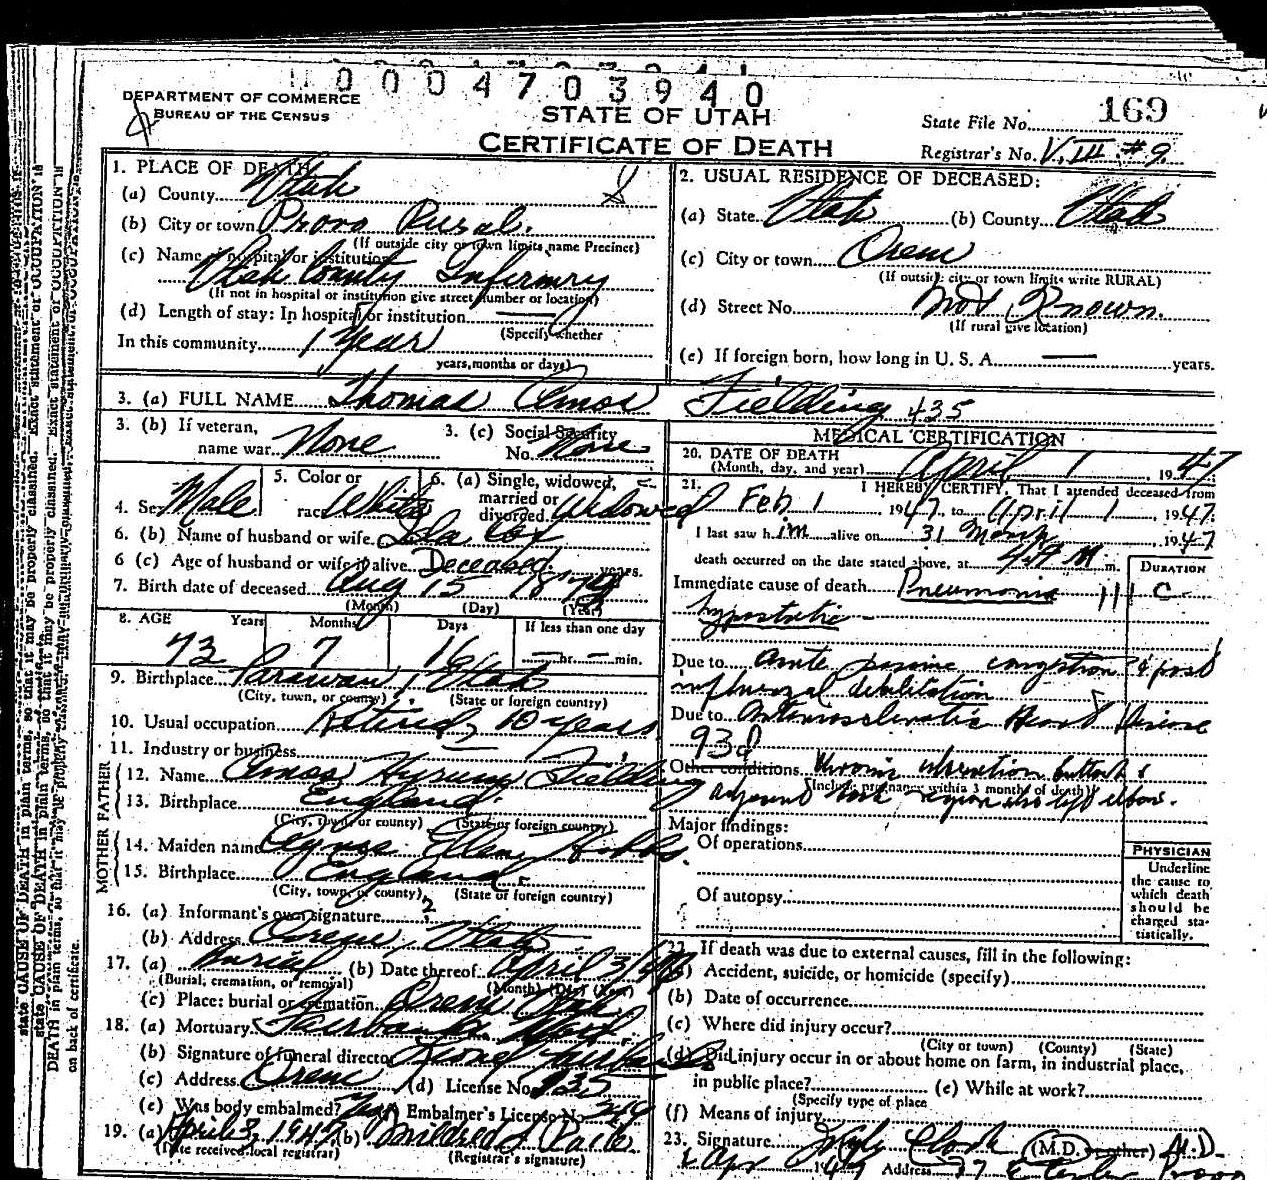 0004703940
DEPARTMENT OF COMMERCE
BUREAU OF THE CENSUS
STATE OF UTAH
CERTIFICATE OF DEATH
State File No. 169
Registrar's No. V. III #9
1. PLACE OF DEATH
(a) County Utah
(b) City or town Provo Rural.
(If outside city or town limits name Precinct)
(c) Name of hospital or institution
Utah County Infirmry
(If not in hospital or institution give street number or location)
(d) Length of stay: In hospital or institution
(Specify whether
In this community 1 Year
years, months or days)
2. USUAL RESIDENCE OF DECEASED:
(a) State Utah (b) County Utah
(c) City or town Orem
(If outside city or town limits write RURAL)
(d) Street No. Not Known.
(If rural give location)
(e) If foreign born, how long in U. S. A. — years.
3. (a) FULL NAME Thomas Amos Fielding 435
3. (b) If veteran,
name war None
3. (c) Social Security
No. None
4. Sex Male
5. Color or
race White
6. (a) Single, widowed,
married or
divorced Widowed
6. (b) Name of husband or wife Ida Cox
6 (c) Age of husband or wife if alive Deceased. years.
7. Birth date of deceased Aug 15 1873
(Month) (Day) (Year)
8. AGE Years Months Days If less than one day
73 7 16 — hr. — min.
9. Birthplace Parawan, Utah
(City, town, or county) (State or foreign country)
10. Usual occupation Retired, 10 years
11. Industry or business
FATHER
12. Name Amos Hyrum Fielding
13. Birthplace England.
(City, town, or county) (State or foreign country)
MOTHER
14. Maiden name Ellen
15. Birthplace England
(City, town, or county) (State or foreign country)
16. (a) Informant's own signature ?
(b) Address Orem, Utah
17. (a) Burial (b) Date thereof April 3, 47
(Burial, cremation, or removal) (Month) (Day) (Year)
(c) Place: burial or cremation Orem Utah
18. (a) Mortuary Fairbanks
(b) Signature of funeral director
(c) Address Orem (d) License No. 935
(e) Was body embalmed? Yes (f) Embalmer's License No.
19. (a) April 3, 1947 (b) Mildred
(Date received local registrar) (Registrar's signature)
MEDICAL CERTIFICATION
20. DATE OF DEATH
(Month, day, and year) April 1 1947
21. I HEREBY CERTIFY, That I attended deceased from
Feb 1 1947, to April 1 1947.
I last saw him alive on 31 March 1947
death occurred on the date stated above, at m.
DURATION
Immediate cause of death Pneumonia
hypostatic
Due to acute passive congestion & post
influenzal debilitation
Due to Arteriosclerotic Heart Disease
93d
Other conditions Chronic ulceration buttock &
(Include pregnancy within 3 months of death)
adjacent back region also left elbow.
Major findings:
Of operations
Of autopsy
PHYSICIAN
Underline
the cause to
which death
should be
charged sta-
tistically.
22. If death was due to external causes, fill in the following:
(a) Accident, suicide, or homicide (specify)
(b) Date of occurrence
(c) Where did injury occur?
(City or town) (County) (State)
(d) Did injury occur in or about home on farm, in industrial place,
in public place? (e) While at work?
(Specify type of place
(f) Means of injury
23. Signature Clark (M.D. or other) M.D.
Apr 1947 Address Provo
on back of certificate.